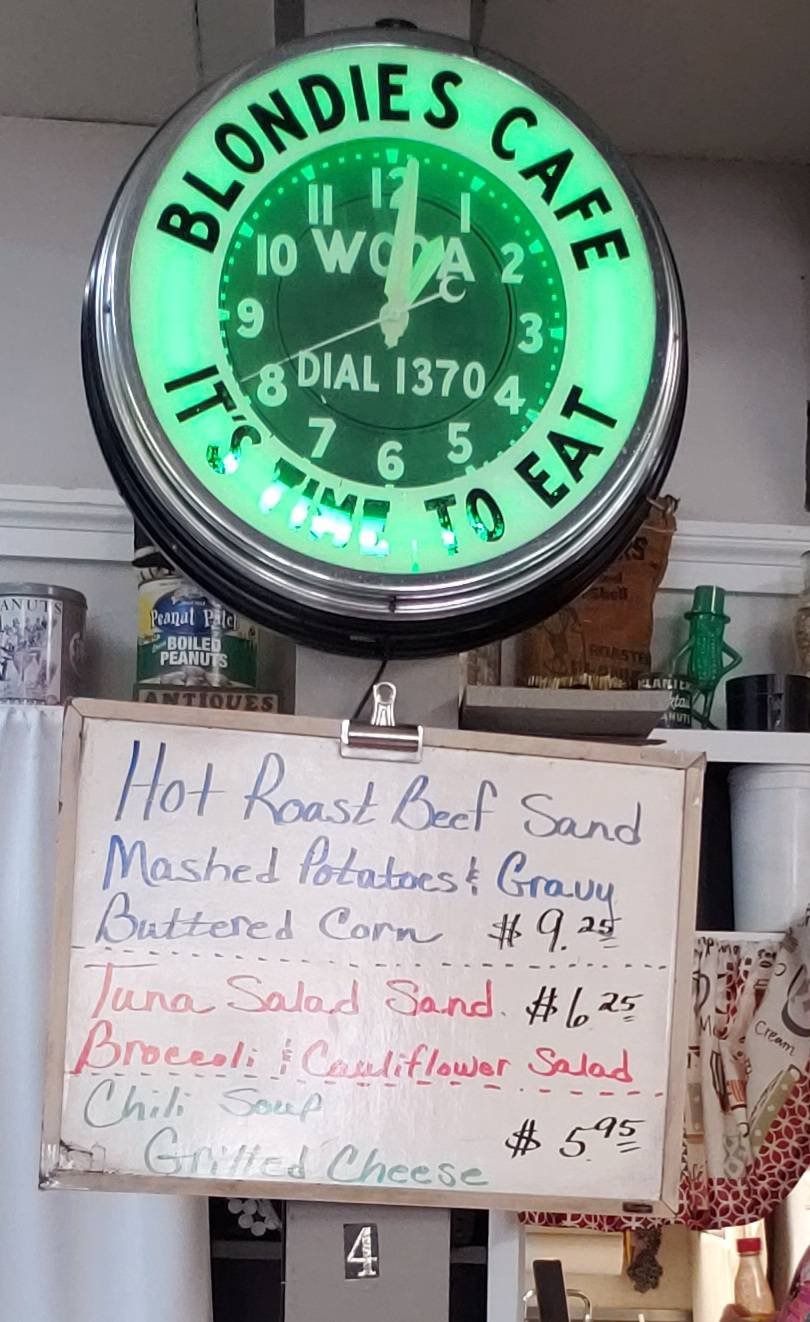 BLONDIES CAFE
12
11 1
10 2
9 3
8 4
7 5
6
DIAL 1370
IT'S TIME TO EAT
EANUTS
Peanut Patch
BOILED
PEANUTS
ANTIQUES
ROASTED
Hot Roast Beef Sand
Mashed Potatoes & Gravy
Buttered Corn $9.25
Tuna Salad Sand. $6.25
Broccoli & Cauliflower Salad
Chili Soup
Grilled Cheese $5.95
Cream
4